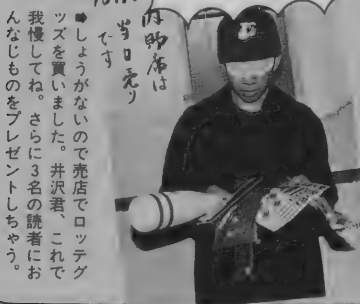 内野席は
当日売り
です
➡しょうがないので売店でロッテグ
ッズを買いました。井沢君、これで
我慢してね。さらに3名の読者にお
んなじものをプレゼントしちゃう。